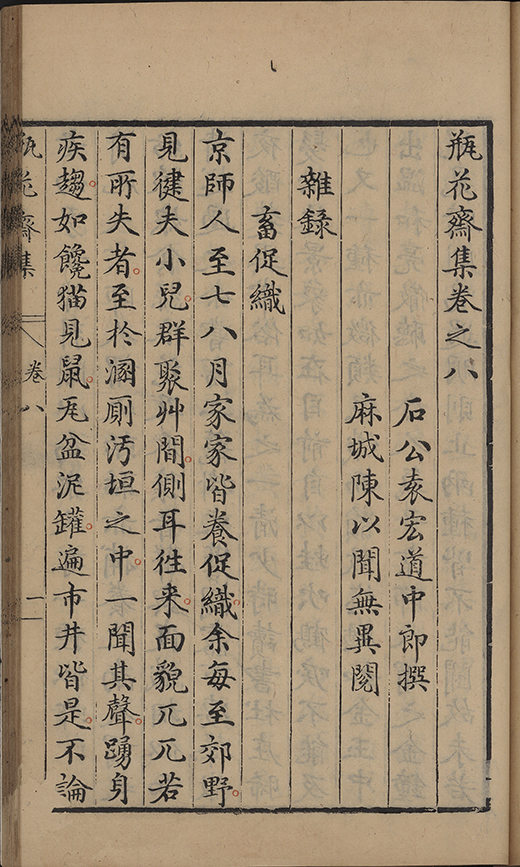 瓶花齋集卷之八
石公袁宏道中郎撰
麻城陳以聞無異閱
雜錄
畜促織
京師人至七八月家家皆養促織余每至郊野
見健夫小兒群聚艸間側耳往来面貌兀兀若
有所失者至於溷厠汚垣之中一聞其聲踴身
疾趨如饞猫見鼠瓦盆泥罐遍市井皆是不論
瓶花齋集
卷八
一